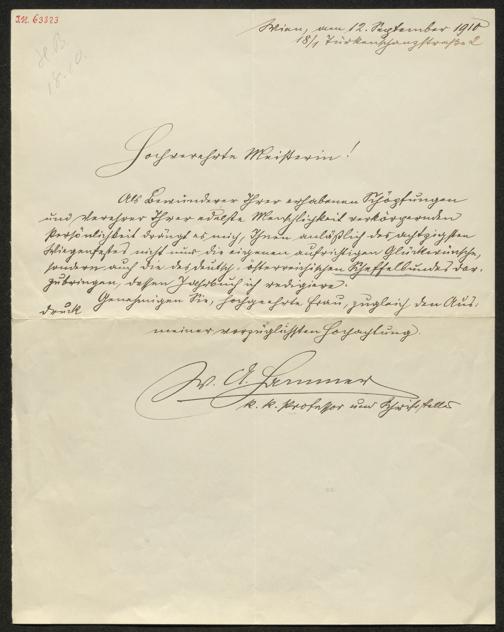 I.N. 63323
H.B.
18.10.
Wien, am 12. September 1910
18/1 Türkenschanzstraße 2
Hochverehrte Meisterin!
Als Bewunderer Ihrer erhabenen Schöpfungen
und Verehrer Ihrer edelste Menschlichkeit verkörpernden
Persönlichkeit drängt es mich, Ihnen anläßlich des achtzigsten
Wiegenfestes nicht nur die eigenen aufrichtigen Glückwünsche,
sondern auch die des deutsch-österreichischen Scheffelbundes dar-
zubringen, dessen Jahrbuch ich redigiere.
Genehmigen Sie, hochgeehrte Frau, zugleich den Aus-
druck
meiner vorzüglichsten Hochachtung.
W. A. Hammer
k. k. Professor und Schriftsteller